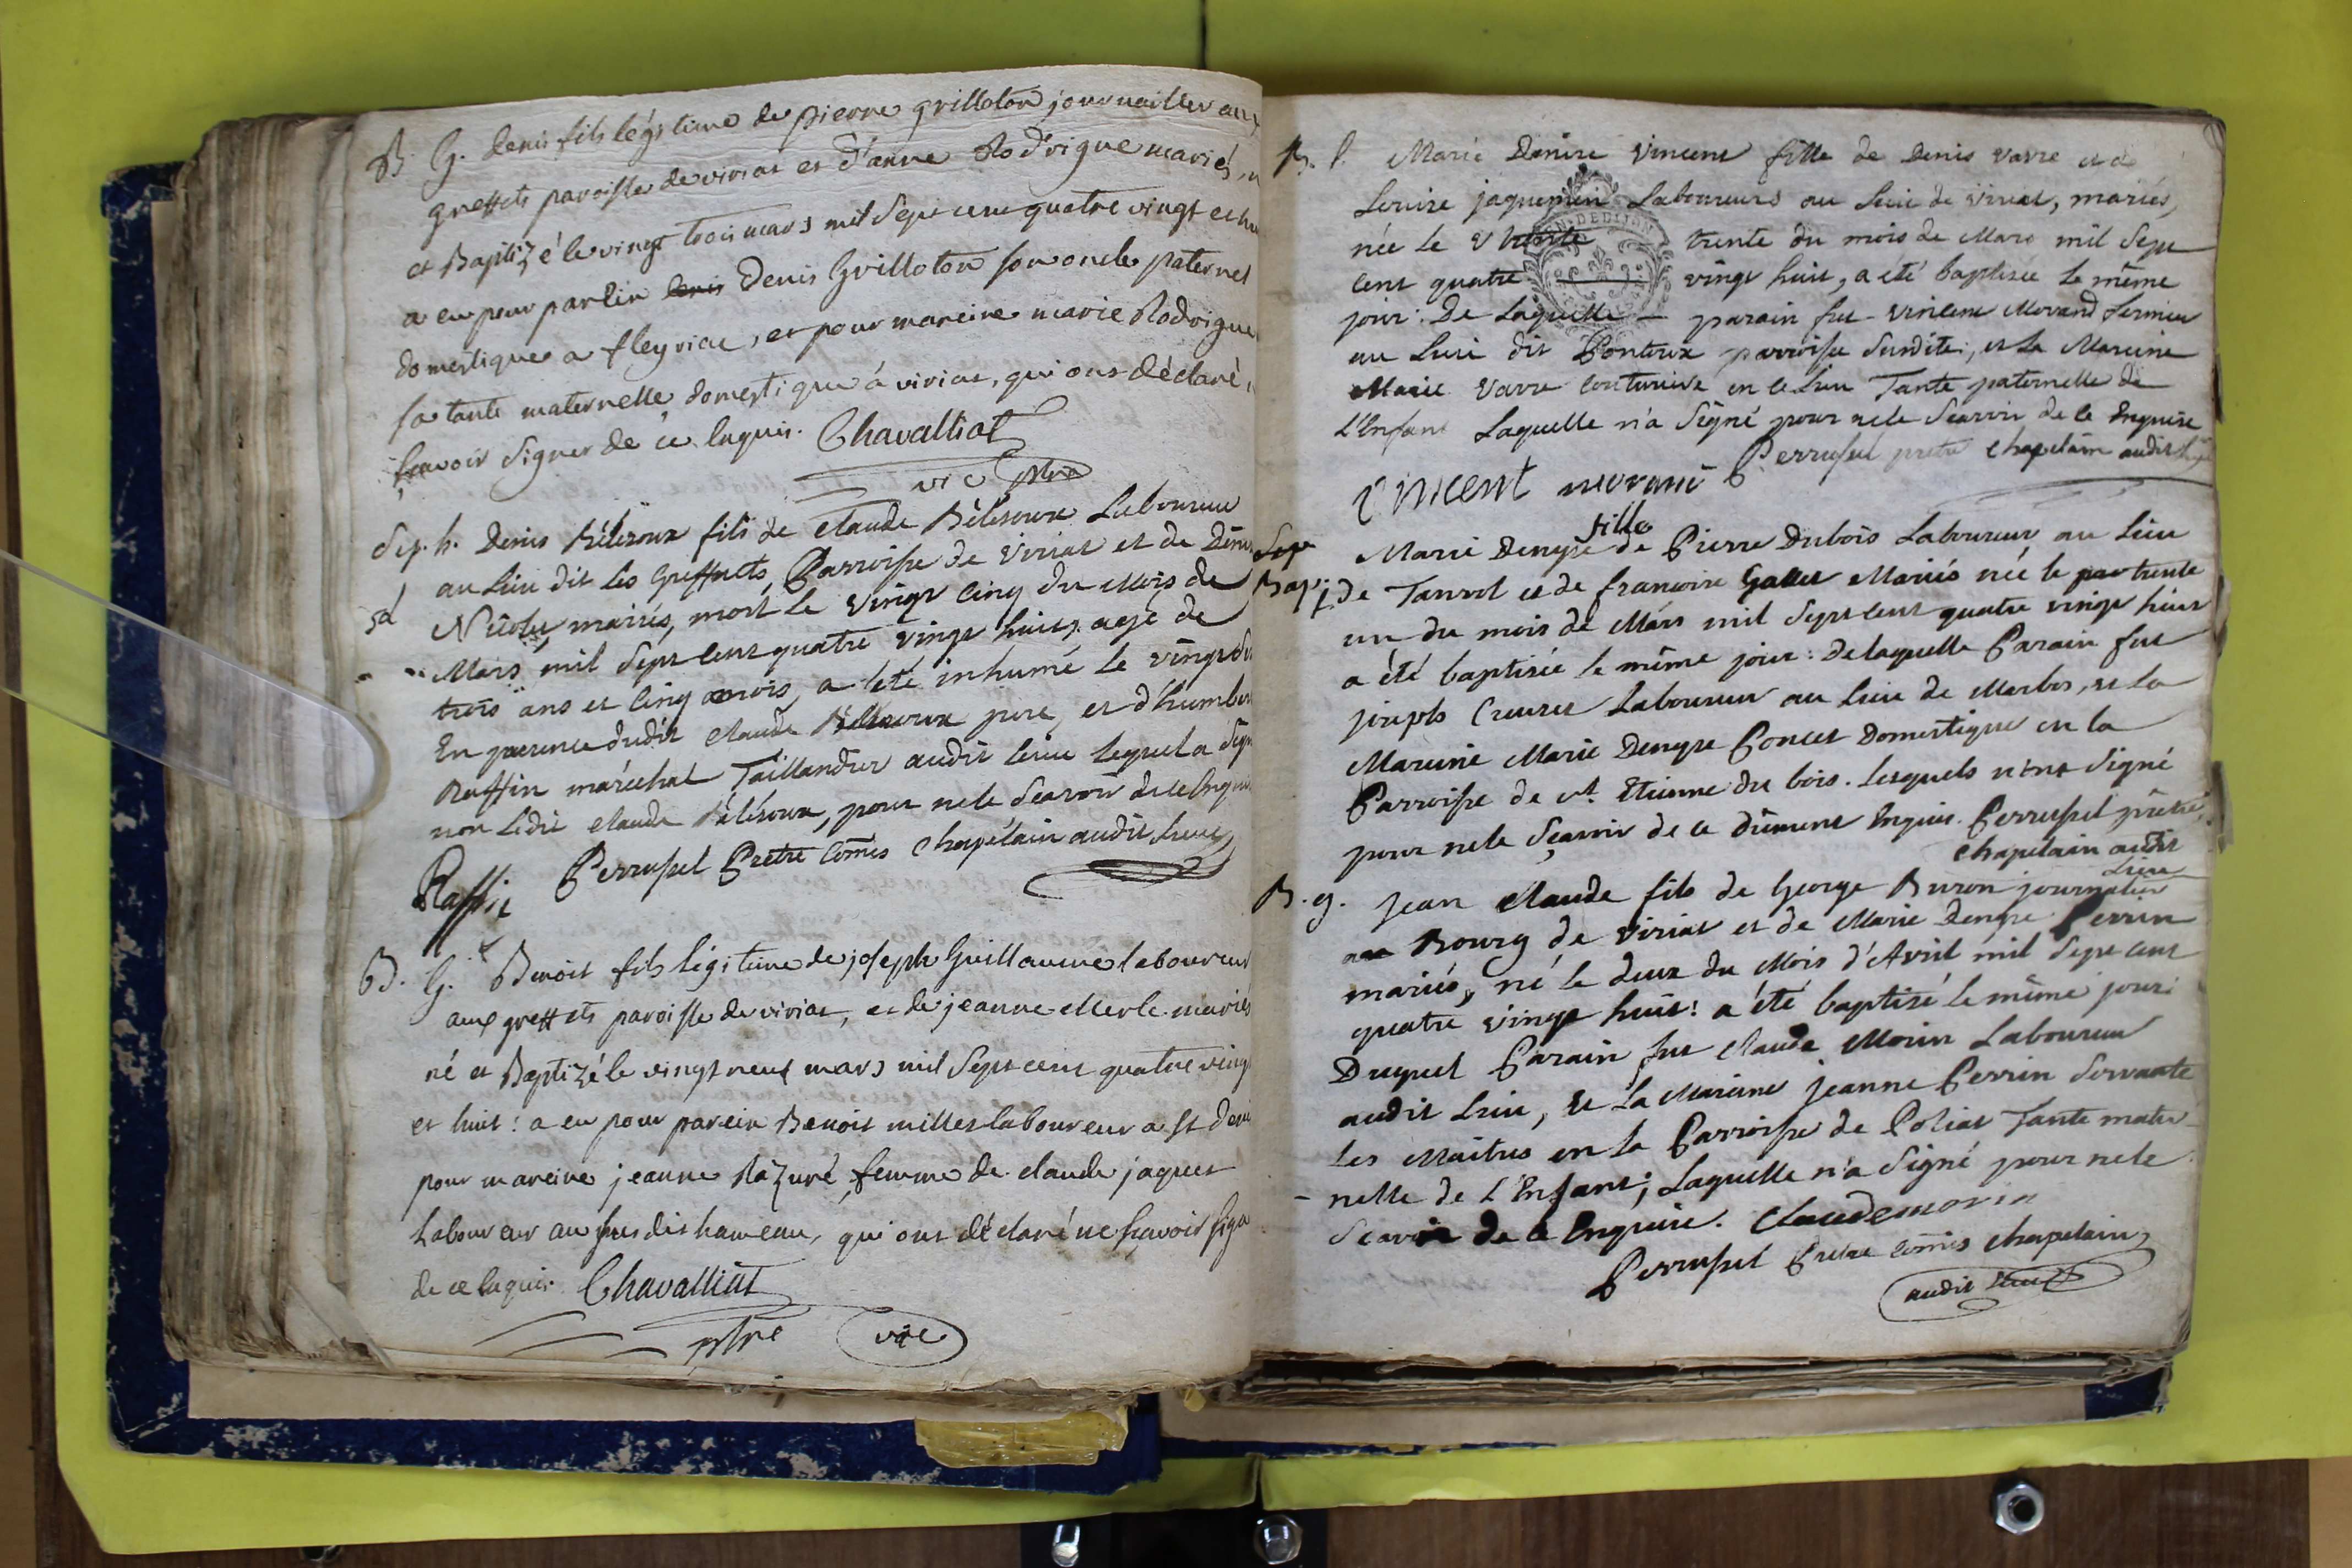 B. G. Denis fils légitime de pierre grilloton journailler aux
greffets paroisse de viriat et d'anne Rodrigue mariés, n
et Baptizé le vingt trois mars mil Sept cent quatre vingt et hu
a eu pour parein Denis Grilloton son oncle paternel
domestique a fleyriac, et pour mareine marie Rodrigue
sa tante maternelle domestique à viriat, qui ont déclaré n
sçavoir signer de ce enquis. Chavalliat
vic ptre
Sep. h. Denis fils de Claude Laboureur
au Lieu dit les Greffets, Parroisse de Viriat et de Denis
Nicolet, mariés, mort le vingt cinq du Mois de
Mars mil Sept cent quatre vingt huit, agé de
trois ans et Cinq mois, a été inhumé le vingt
En presence dudit Claude pere, et d'humber
Raffin maréchal Taillandier audit Lieu lequel a Sign
non Ledit Claude pour ne le Scavoir de ce Enquis
Raffin Perruset Prêtre Cômis Chapelain audit Lieu
B. G. Benoit fils légitime de joseph Guillaume laboureur
aux greffets paroisse de viriat, et de jeanne Merle mariés
né et Baptizé le vingt neuf mars mil Sept cent quatre ving
et huit : a eu pour parein Benoit millet laboureur a St Deni
pour mareine jeanne Razuré femme de claude jaquet
Laboureur au sus dit hameau, qui ont déclaré ne sçavoir sign
de ce enquis. Chavalliat
ptre vic
B. l. Marie Denise Vincent fille de Denis Varre et de
Louise jaquemin Laboureurs au Lieu de Viriat, mariés,
née le trente du mois de Mars mil Sept
Cent quatre vingt huit, a été baptisée le même
jour : De Laquelle parain fut Vincent Morand fermier
au Lieu dit Ponteux parroisse Susdite, et la Mareine
Marie Varre Couturiere en ce Lieu Tante paternelle de
L'Enfant Laquelle n'a Signé pour ne le Scavoir de ce Enquise
Vincent morand Perruset prêtre Chapelain audit
fille
Marie Denyse de Pierre Dubois Laboureur au Lieu
Bap. de Tanvol et de francoise Gallet Mariés née le trente
un du mois de Mars mil Sept cent quatre vingt huit
a été baptisée le même jour : de laquelle Parain fut
joseph Creuset Laboureur au Lieu de Marbos, et la
Mareine Marie Denyse Poncet Domestique en la
Parroisse de St. Etienne du bois. Lesquels n'ont Signé
pour ne le Sçavoir de ce dûment Enquis. Perruset prêtre,
Chapelain audit
Lieu
B. g. jean Claude fils de George Buron journalier
au Bourg de Viriat et de Marie Denyse Perrin
mariés, né le deux du Mois d'Avril mil Sept cent
quatre vingt huit : a été baptisé le même jour :
Duquel Parain fut Claude Morin Laboureur
audit Lieu, et La Mareine jeanne Perrin Servante
Les Maitres en la Parroisse de Poliat Tante mater
nelle de L'Enfant, Laquelle n'a Signé pour ne le
Scavoir de ce Enquise. claude morin
Perruset Prêtre Cômis Chapelain,
audit Lieu